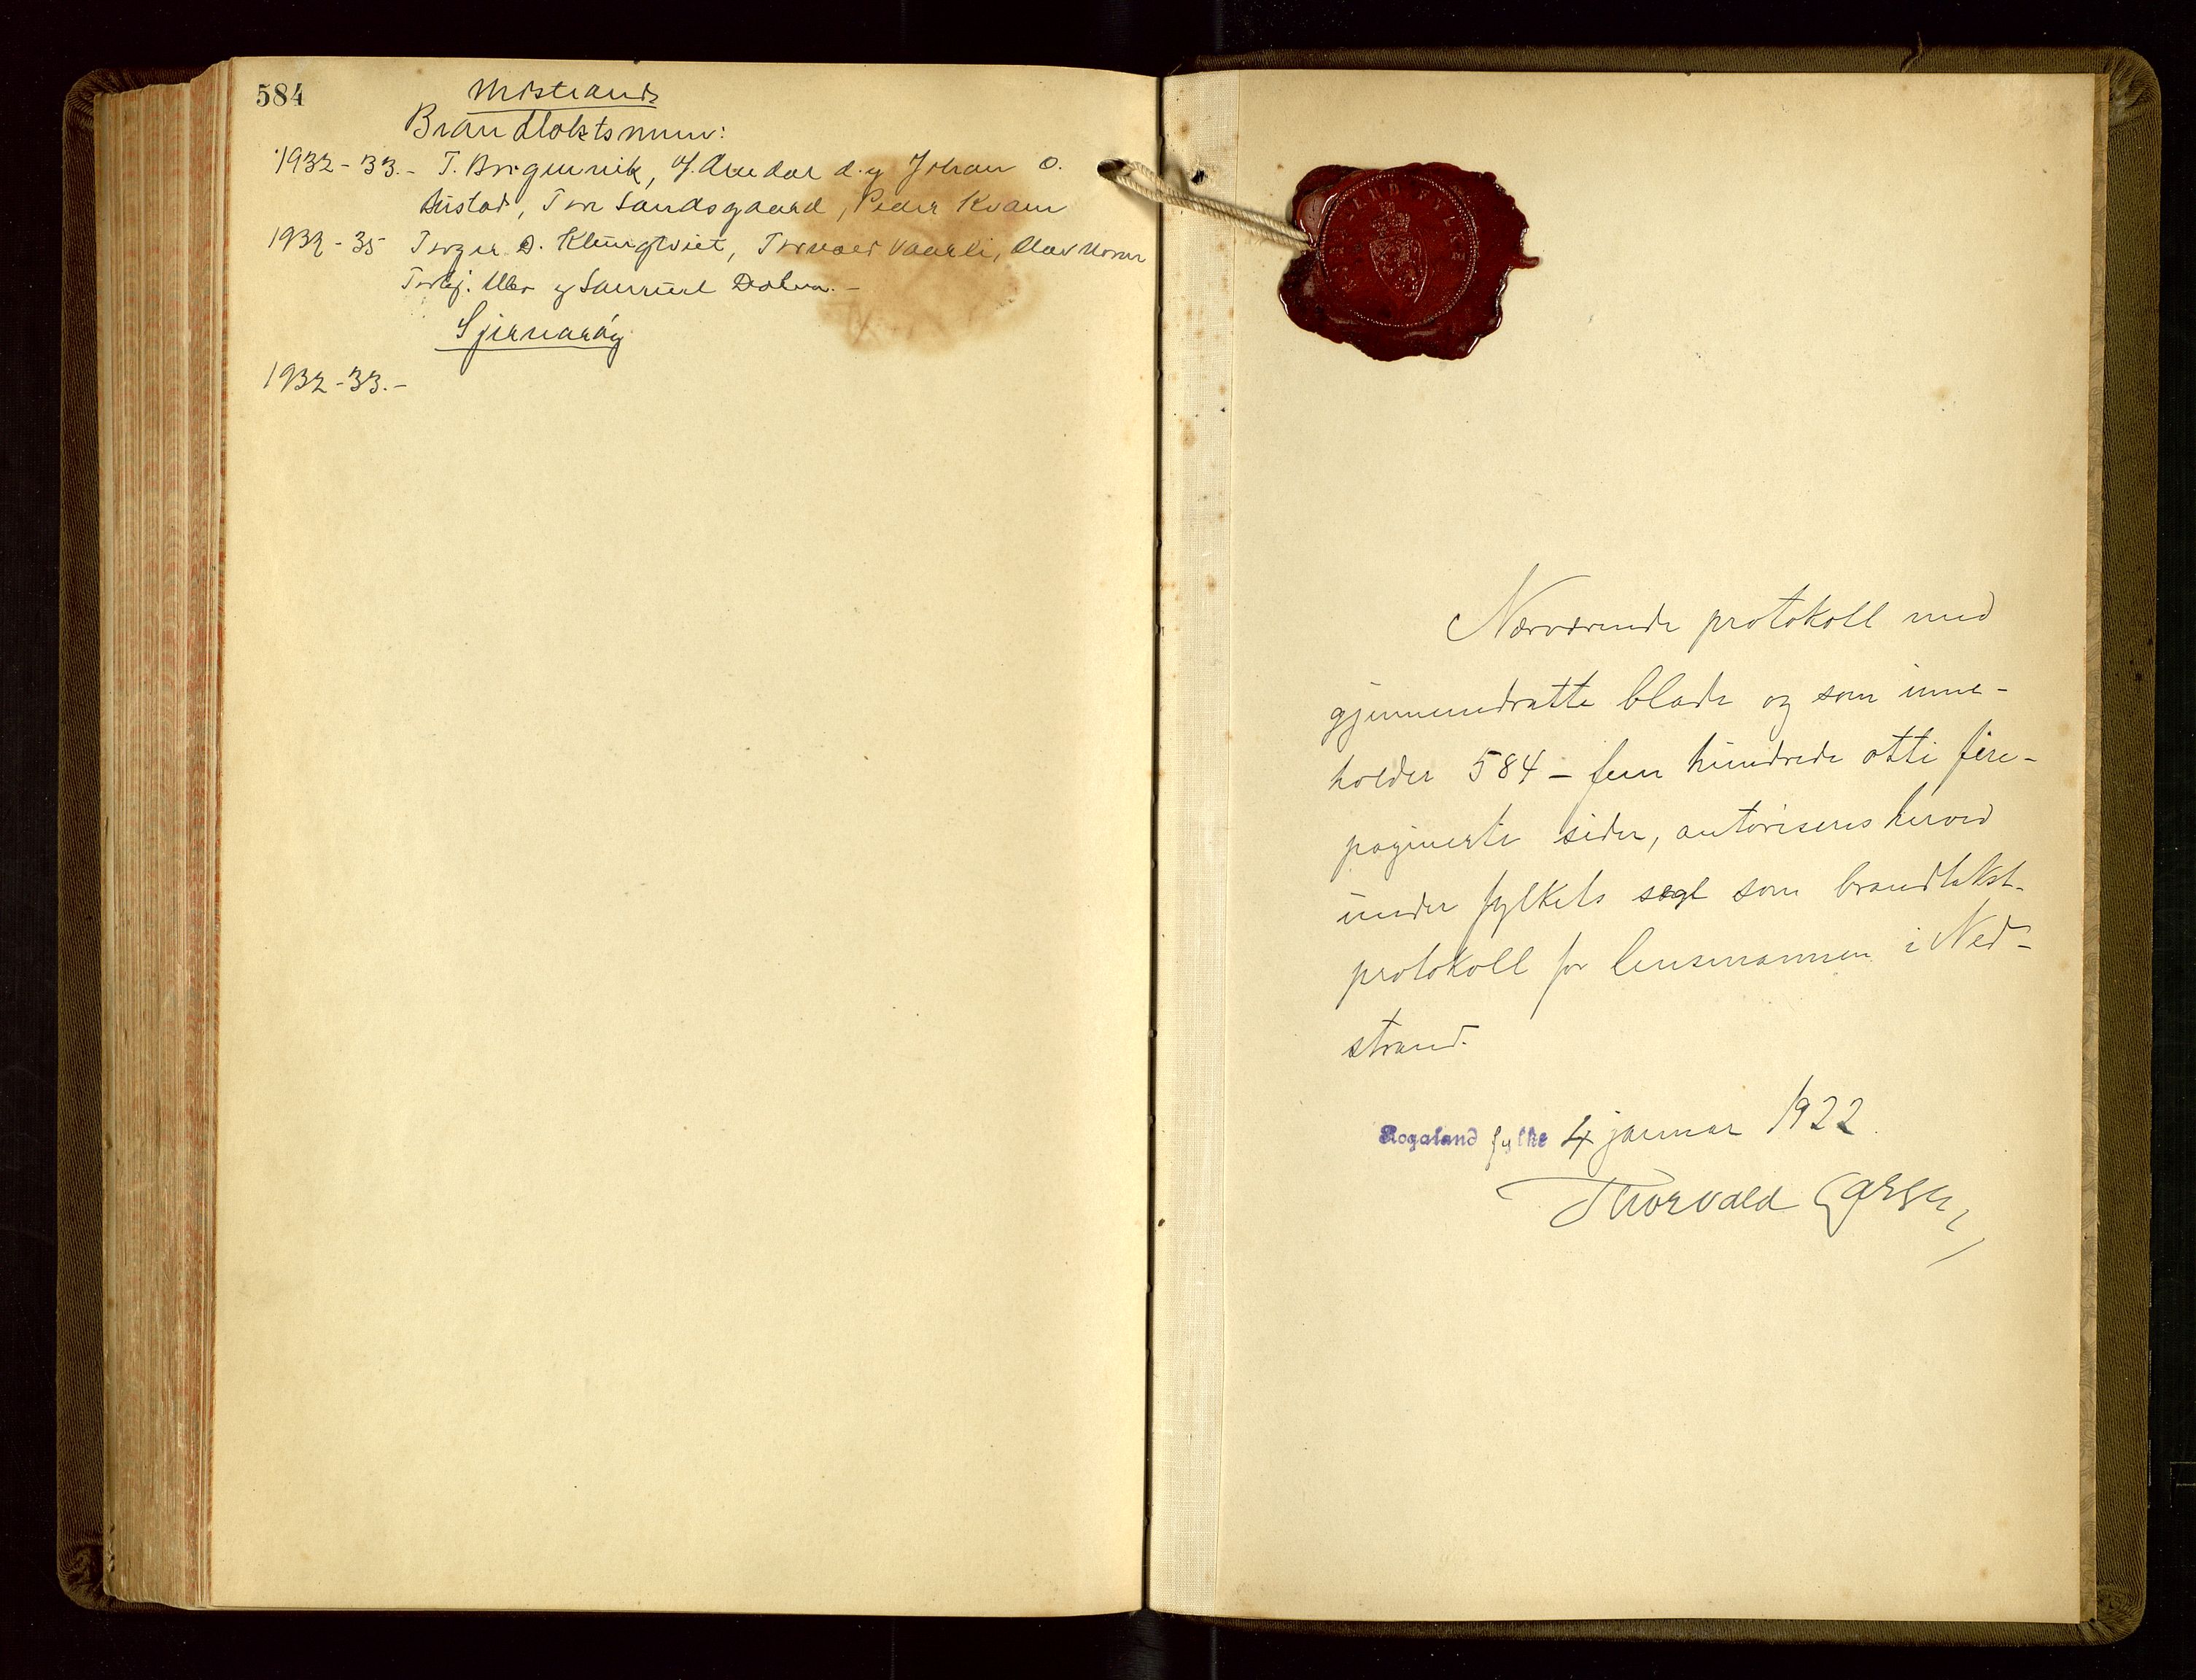 584
Brandtakstsmenn:
1932-33.- T. Borgenvik, J. Aredal d.y Johan O.
Austad, Tor Sandsgaard, Peder Kvam
1932-35 Torger D. Klungtviet, Torvald Vaarli, Olav
og Samuel
Sjernarøy
1932-33.-
ROGALAND FYLKE
Nærværende protokoll med
gjennemdratte blade og som inne-
holder 584 - fem hundrede otti fire -
paginerte sider, autoriseres herved
under fylkets segl som brandtakst-
protokoll for lensmannen i Ned-
strand.
Rogaland fylke 4 januar 1922.
Thorvald Larsen